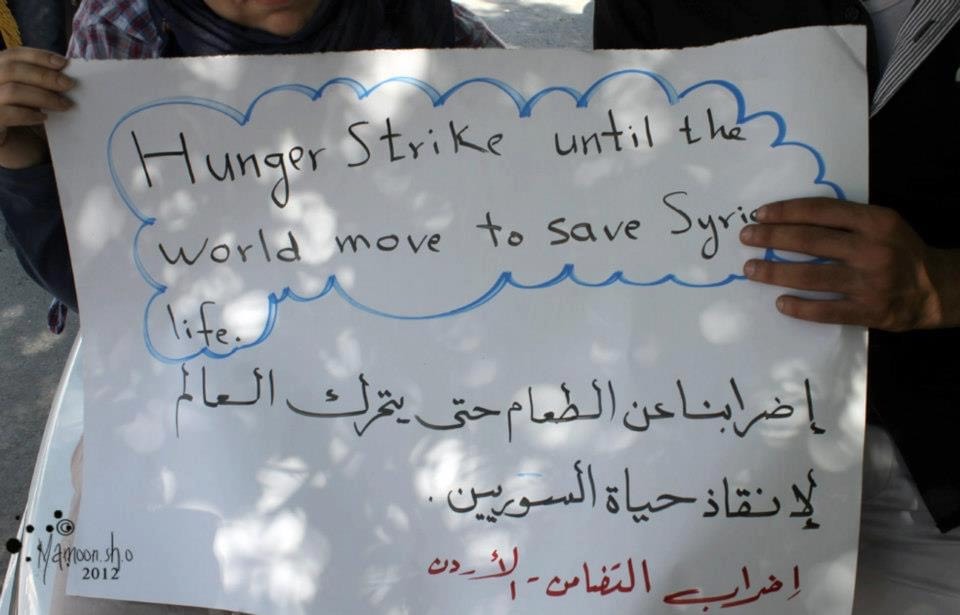 Hunger Strike until the
world move to save
life.
إضرابنا عن الطعام حتى يتحرك العالم
لإنقاذ حياة السوريين .
إضراب التضامن - الأردن
Mamoon.sh.o
2012